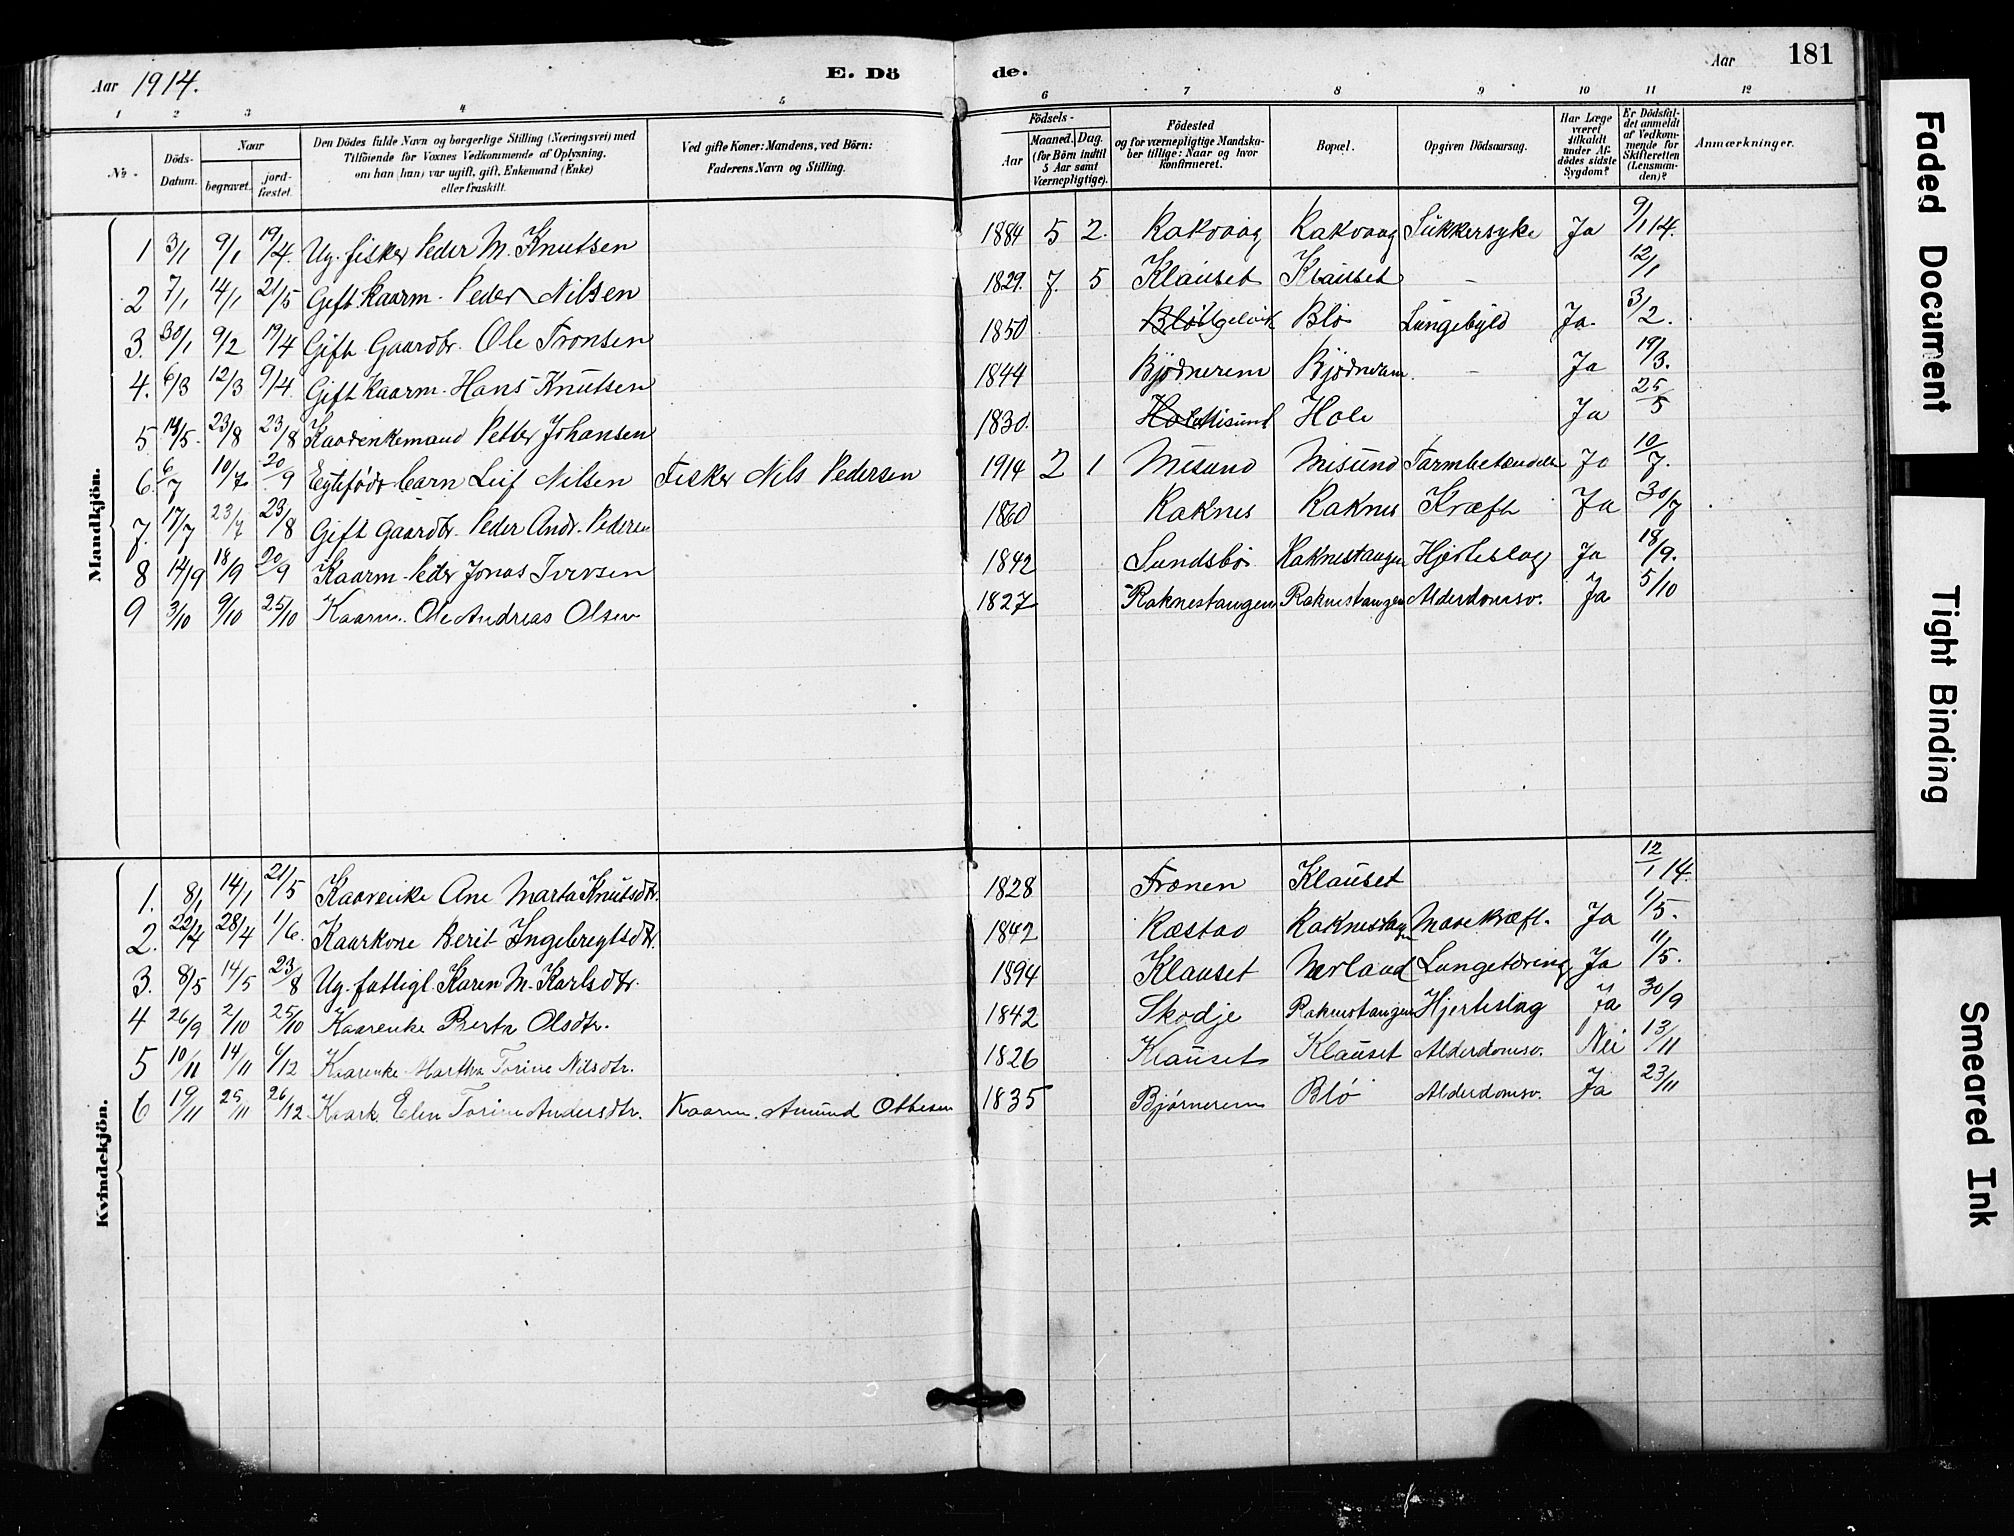 Aar 1914.
E. Dö de.
Aar 181
1 2 3 4 5 6 7 8 9 10 11 12
No
Döds-Datum.
Naar
begravet.
jordfæstet.
Den Dödes fulde Navn og borgerlige Stilling (Næringsvei) med
Tilföiende for Voxnes Vedkommende af Oplysning,
om han (hun) var ugift, gift, Enkemand (Enke)
eller fraskilt.
Ved gifte Koner: Mandens, ved Börn:
Faderens Navn og Stilling.
Födsels-
Aar
Maaned. Dag.
(for Börn indtil
5 Aar samt
Værnepligtige).
Födested
og for værnepligtige Mandskaber tillige: Naar og hvor
konfirmeret.
Bopæl.
Opgiven Dödsaarsag.
Har Læge
været
tilkaldt
under Afdödes sidste
Sygdom?
Er Dödsfaldet anmeldt
af Vedkommende for
Skifteretten
(Lensmanden)?
Anmærkninger.
Mandkjön.
1 3/1 9/1 19/4. Ug. fisker Peder M. Knutsen 1884 5 2. Rakvaag Rakvaag Sukkersyke Ja 9/1 14.
2 7/1 14/1 21/5 Gift kaarm. Peder Nilsen 1829. 7. 5 Klauset Klauset - 12/1
3. 30/1 9/2 19/4 Gift Gaardbr. Ole Tronsen 1850 Blö Lungebyld Ja. 3/2.
4. 6/3 12/3 9/4. Gift kaarm. Hans Knutsen 1844 Bjödnerem - Ja 19/3.
5 23/8 23/8 Petter Johansen 1830. Misund Hole Ja 25/5
6. 6/7 10/7 20/9 Egtefödt barn Leif Nilsen Fisker Nils Pedersen 1914 2 1 Misund Misund Ja 10/7.
7. 17/7 23/7 23/8 Gift Gaardbr. Peder Andr. 1860 Raknes Raknes Kræft Ja 30/7
8 14/9 18/9 20/9 Kaarm. Peder Jonas Iversen 1842 Sundsbö Raknestangen Hjerteslag Ja 18/9.
9 3/10 9/10 25/10 Kaarm. Ole Andreas Olsen 1827 Raknestangen Raknestangen Alderdomsv. Ja 5/10
Kvindekjön.
1. 8/1 14/1 21/5 Kaarenke Ane Marta Knutsdtr. 1828 Klauset 12/1 14.
2. 22/4 28/4 1/6. Kaarkone Berit Ingebregtsdtr. 1842 Ræstad Mavekræft. Ja 1/5.
3. 8/5 14/5 23/8 Ug. fattigl. Karen M. Karlsdtr. 1894 Klauset Nerland Lungetæring Ja 11/5.
4 26/9 2/10 25/10 Kaarenke Berta Olsdtr. 1842 Skodje Raknestangen Hjerteslag Ja 30/9
5 10/11 14/11 6/12 Kaarenke Martha Torine Nilsdtr. 1826 Klauset Klauset Alderdomsv. Nei 13/11
6 19/11 25/11 26/12 Kaark. Elen Torine Andersdtr. Kaarm. Amund Ottesen 1835 Bjørnerem Blö Alderdomsv. Ja 23/11
Faded Document
Tight Binding
Smeared Ink